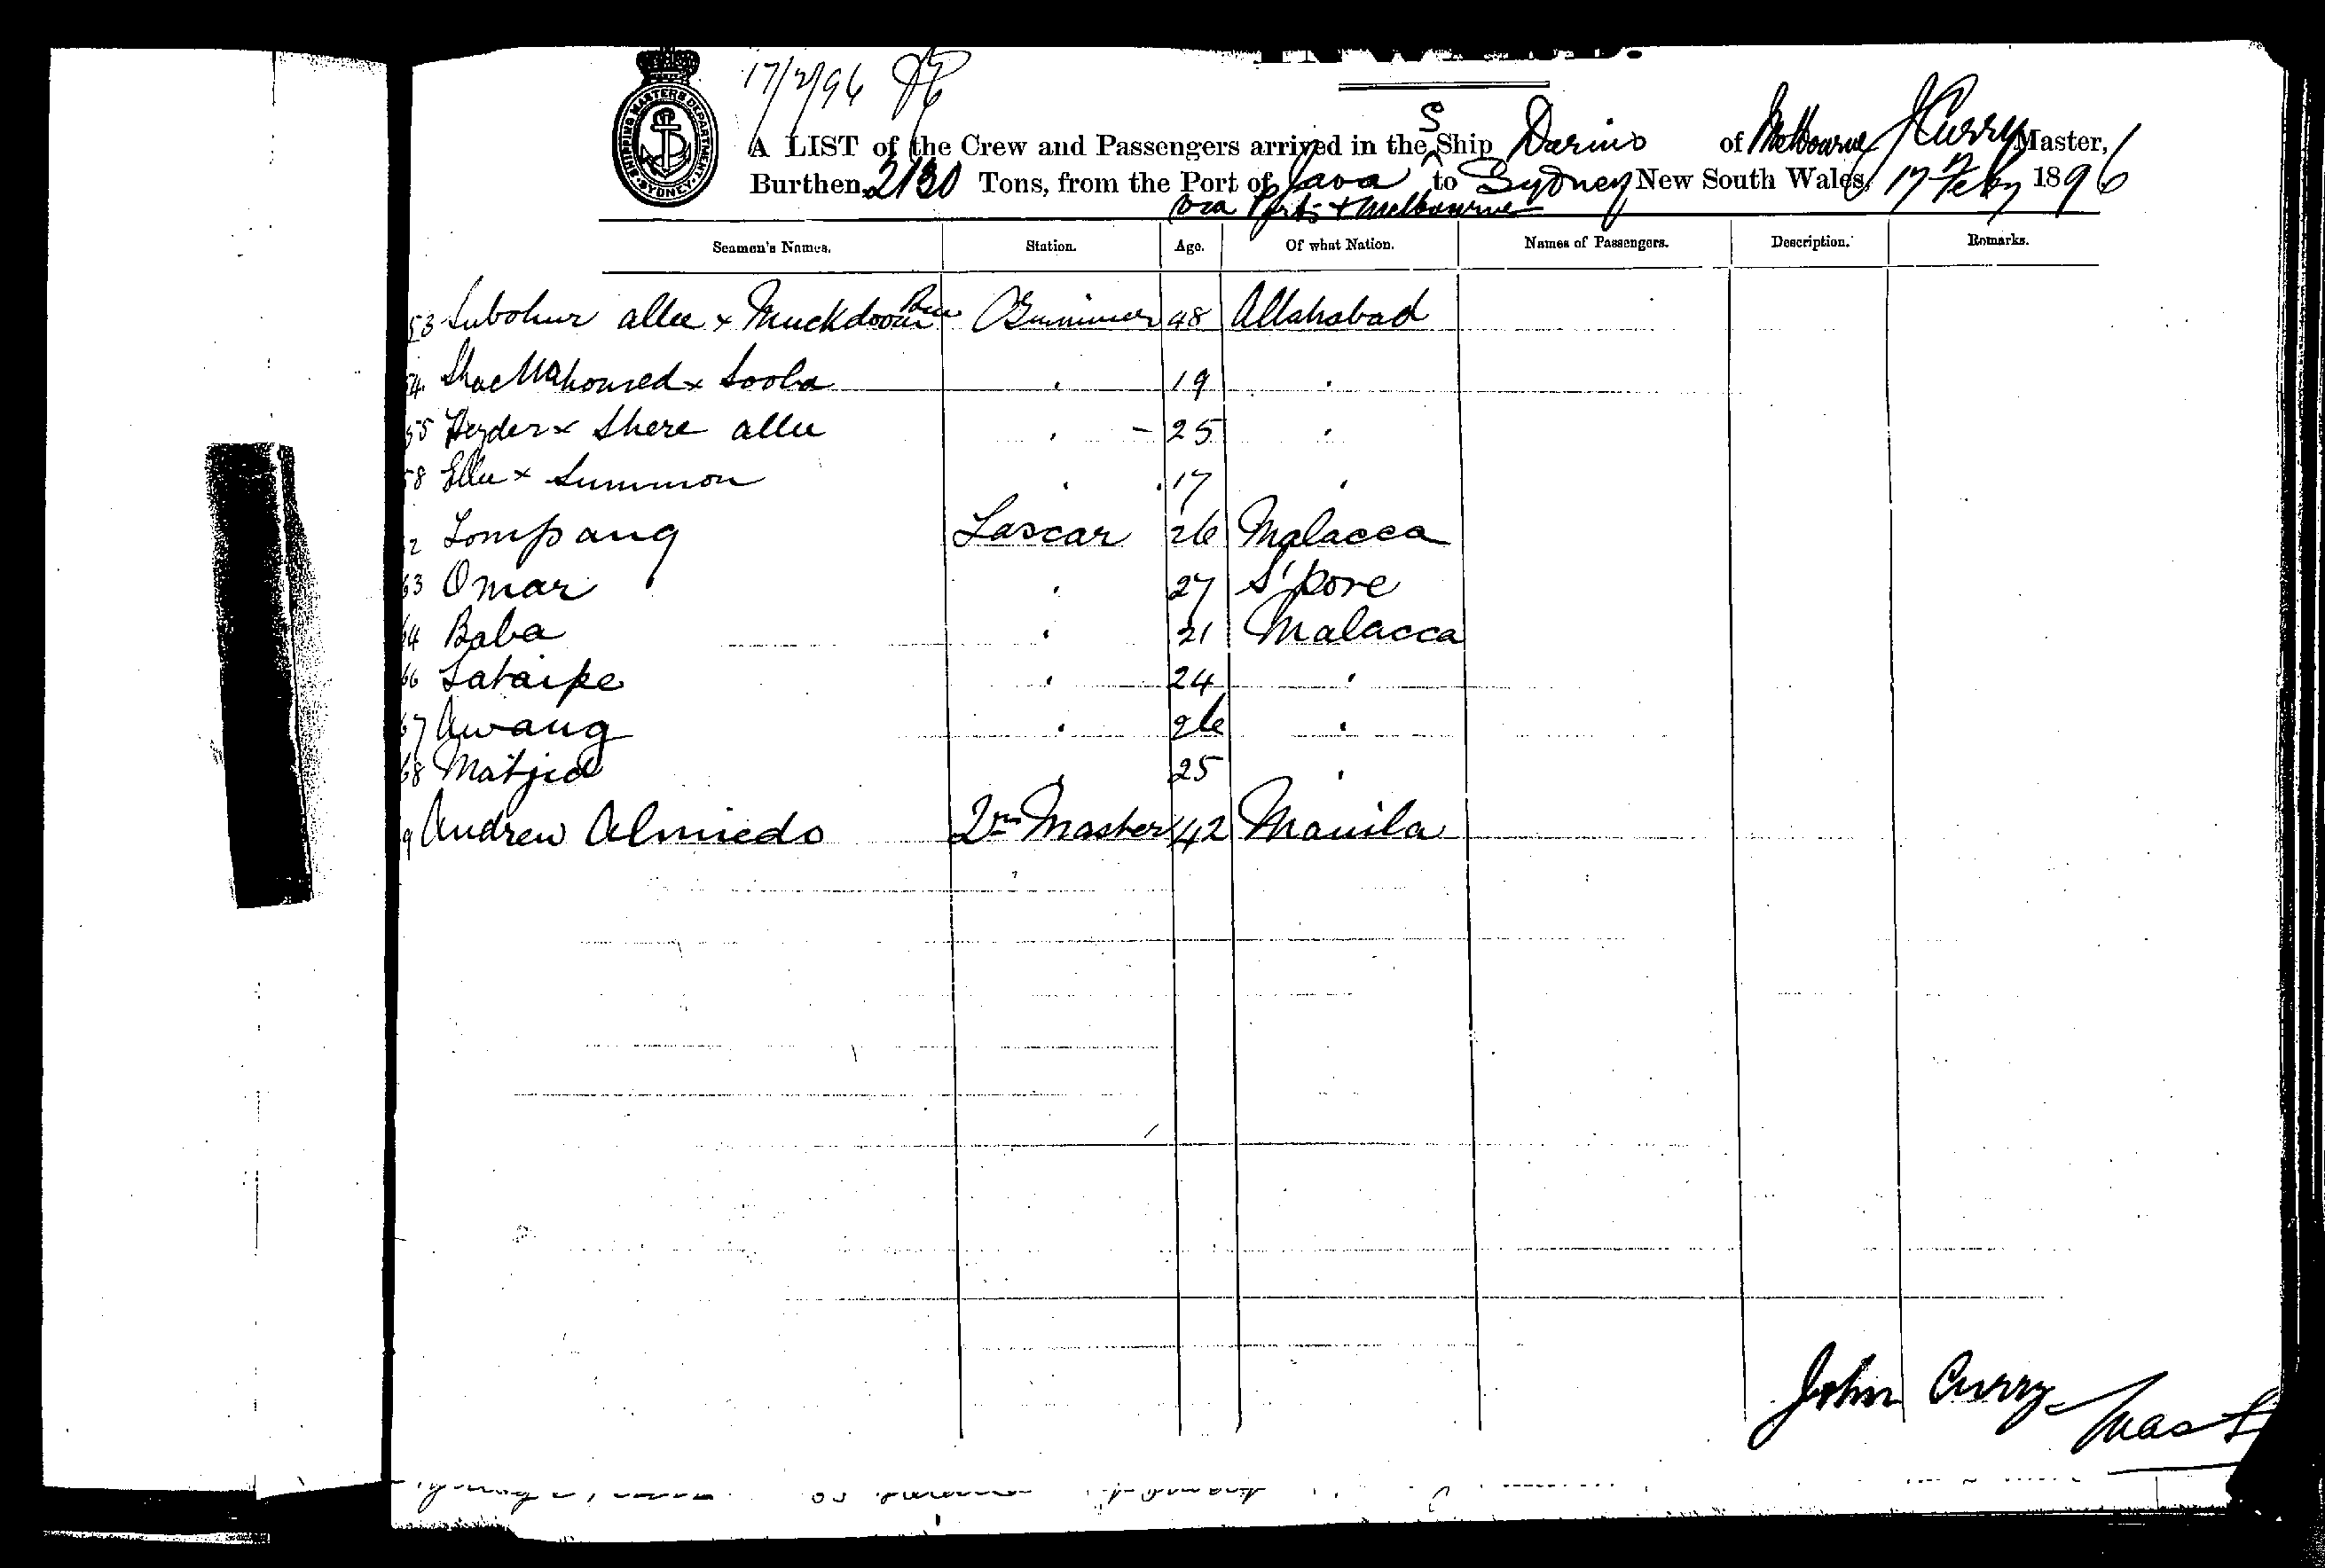 17/2/96
SHIPPING MASTERS DEPARTMENT SYDNEY
A LIST of the Crew and Passengers arrived in the S Ship Darius of Melbourne J Curry Master,
Burthen 2130 Tons, from the Port of Java to Sydney New South Wales, 17th Feby 1896
via Ports & Melbourne
Seamen's Names. Station. Age. Of what Nation. Names of Passengers. Description. Remarks.
53 Subohur allee x Muckdoom 48 Allahabad
54 Shac Mahomed x Sooba " 19 "
55 Heyder x Shere allee " 25 "
58 Ellu x Summon " 17 "
Lompang Lascar 26 Malacca
63 Omar " 27 S'pore
64 Baba " 21 Malacca
66 Lataipe " 24 "
67 Awang " 26 "
68 Matjid " 25 "
9 Andrew Almiedo 2nd Master 42 Manila
John Curry
Mast